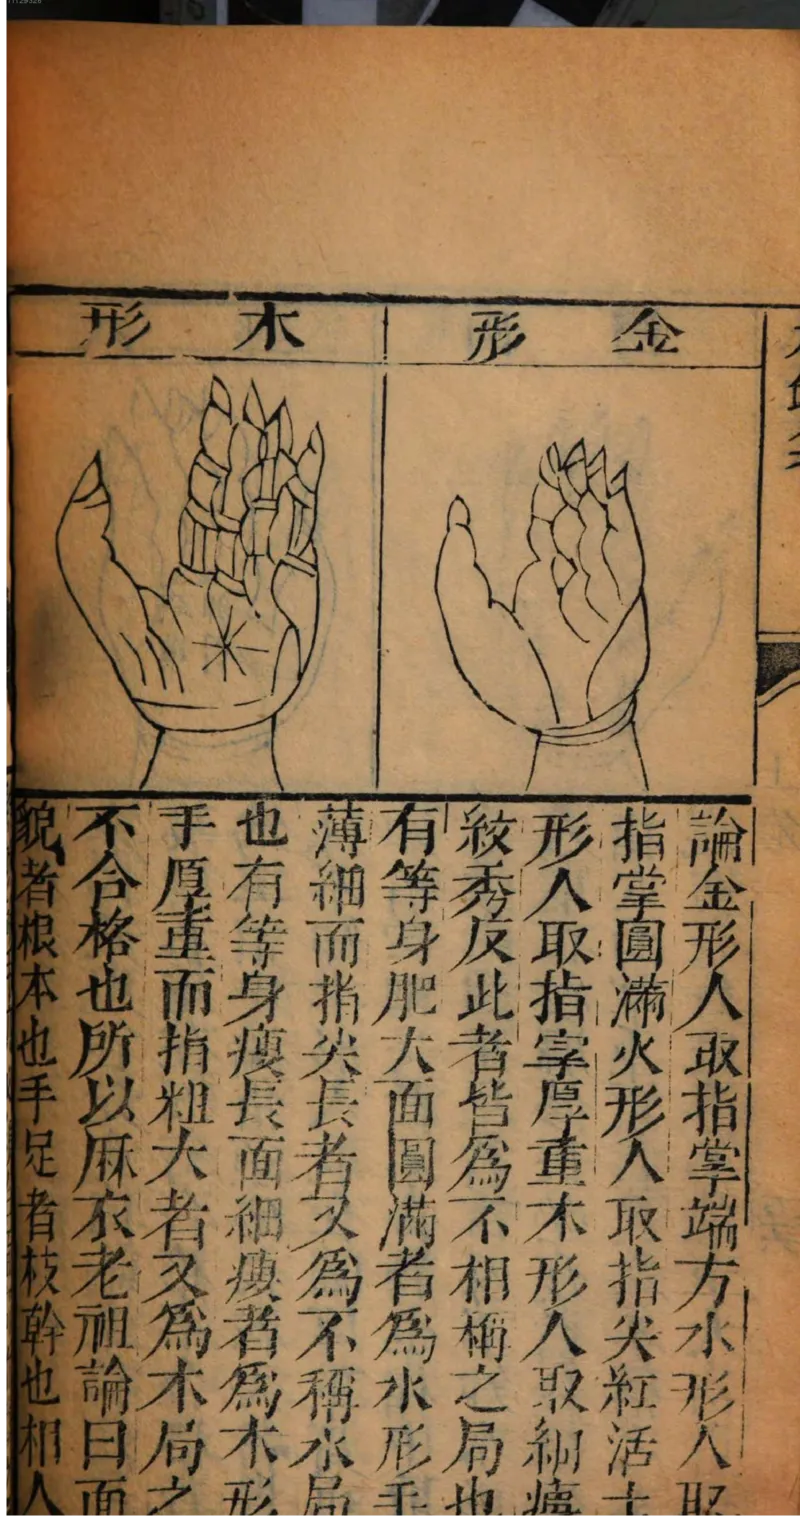 金形
木形
論金形人取指掌端方水形人取
指掌圓滿火形人取指尖紅活土
形人取指掌厚重木形人取細瘦
紋秀反此者皆為不相稱之局也
有等身肥大面圓滿者為水形手
薄細而指尖長者又為不稱水局
也有等身瘦長面細瘦者為木形
手厚重而指粗大者又為木局之
不合格也所以麻衣老祖論曰面
貌者根本也手足者枝幹也相人